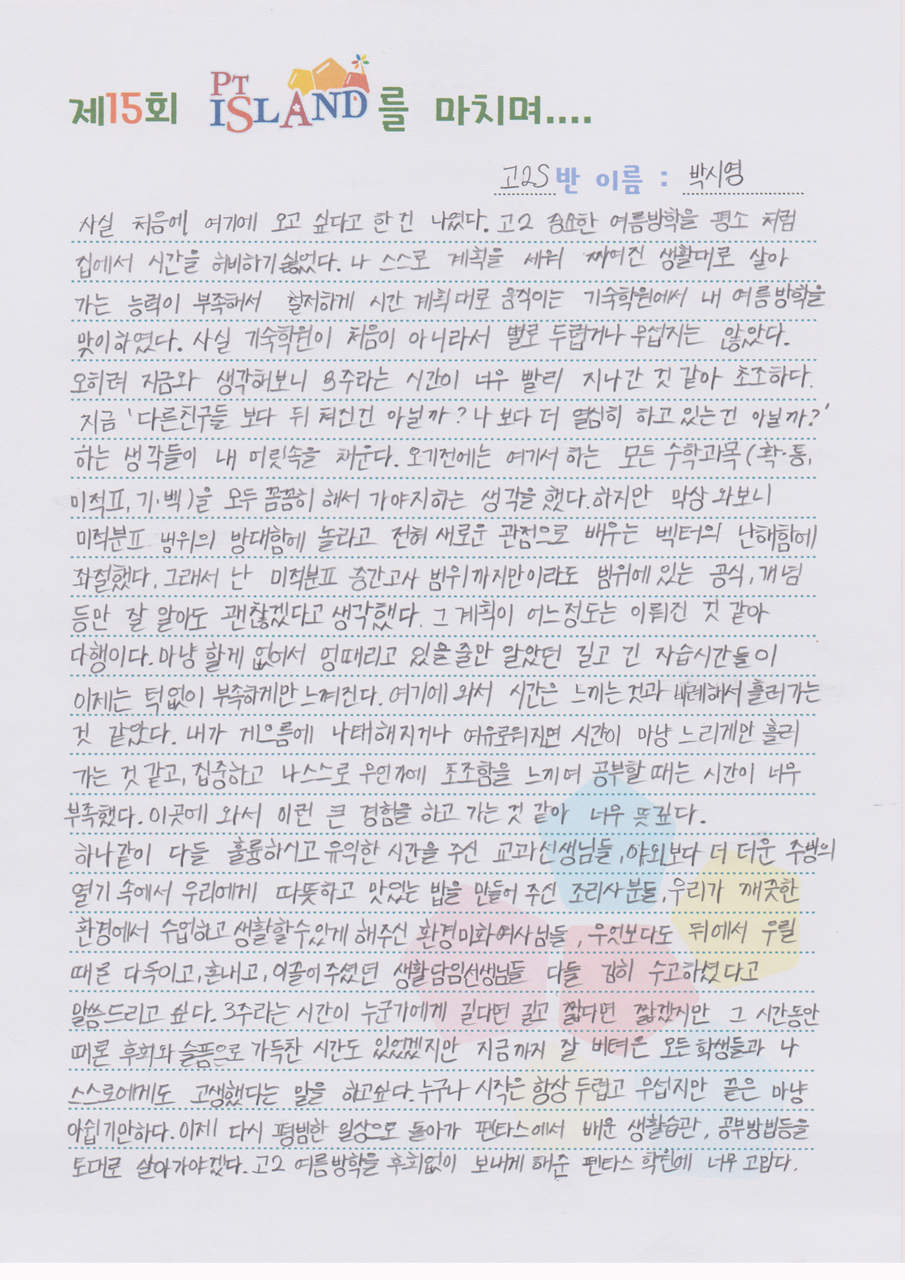 제15회 PT ISLAND를 마치며....
고2S 반 이름 : 박시영
사실 처음에, 여기에 오고 싶다고 한건 나였다. 고2 중요한 여름방학을 평소 처럼
집에서 시간을 허비하기 싫었다. 나 스스로 계획을 세워 짜여진 생활대로 살아
가는 능력이 부족해서 철저하게 시간 계획대로 움직이는 기숙학원에서 내 여름방학을
맞이하였다. 사실 기숙학원이 처음이 아니라서 별로 두렵거나 무섭지는 않았다.
오히려 지금와 생각해보니 3주라는 시간이 너무 빨리 지나간 것 같아 초조하다.
지금 '다른친구들 보다 뒤 쳐진건 아닐까? 나 보다 더 열심히 하고 있는건 아닐까?'
하는 생각들이 내 머릿속을 채운다. 오기전에는 여기서 하는 모든 수학과목(확·통,
미적표, 기·벡)을 모두 꼼꼼히 해서 가야지하는 생각을 했다. 하지만 막상 와보니
미적분표 범위의 방대함에 놀라고 전혀 새로운 관점으로 배우는 벡터의 난해함에
좌절했다. 그래서 난 미적분표 중간고사 범위까지만이라도 범위에 있는 공식, 개념
등만 잘 알아도 괜찮겠다고 생각했다. 그 계획이 어느정도는 이뤄진 것 같아
다행이다. 마냥 할게 없어서 멍때리고 있을줄만 알았던 길고 긴 자습시간들이
이제는 턱없이 부족하게만 느껴진다. 여기에 와서 시간은 느끼는것과 비례해서 흘러가는
것 같았다. 내가 게으름에 나태해지거나 여유로워지면 시간이 마냥 느리게만 흘러
가는 것 같고, 집중하고 나스스로 무언가에 초조함을 느끼며 공부할 때는 시간이 너무
부족했다. 이곳에 와서 이런 큰 경험을 하고 가는것 같아 너무 뜻깊다.
하나같이 다들 훌륭하시고 유익한 시간을 주신 교과선생님들, 야외보다 더 더운 주방의
열기 속에서 우리에게 따뜻하고 맛있는 밥을 만들어 주신 조리사분들, 우리가 깨끗한
환경에서 수업하고 생활할수있게 해주신 환경미화여사님들, 무엇보다도 뒤에서 우릴
때론 다독이고, 혼내고, 이끌어주셨던 생활담임선생님들 다들 감히 수고하셨다고
말씀드리고 싶다. 3주라는 시간이 누군가에게 길다면 길고 짧다면 짧겠지만 그 시간동안
때론 후회와 슬픔으로 가득찬 시간도 있었겠지만 지금까지 잘 버텨온 모든학생들과 나
스스로에게도 고생했다는 말을 하고싶다. 누구나 시작은 항상 두렵고 무섭지만 끝은 마냥
아쉽기만하다. 이제 다시 평범한 일상으로 돌아가 펜타스에서 배운 생활습관, 공부방법등을
토대로 살아가야겠다. 고2 여름방학을 후회없이 보내게 해준 펜타스 학원에 너무 고맙다.